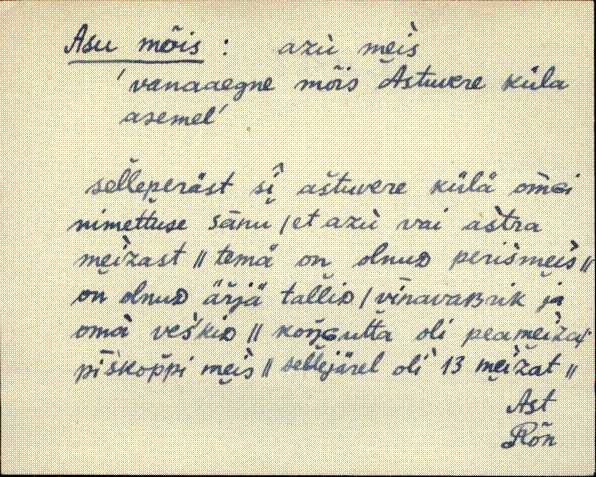 Asu mõis : azù meìs
'vanaaegne mõis Astuvere küla
asemel'
selleperäst sî aštuvere külä omài
nimettuse sānu / et azù vai aštra
meìzast // temä on olnuᴅ perismeìs //
on olnuᴅ ärjä tallìᴅ / vīnavaʙrik ja
omà veškiᴅ // koŋɢutta oli peameìzà /
pīskoppi meìs // sellejärel oli 13 meìzat //
Ast
Rõn